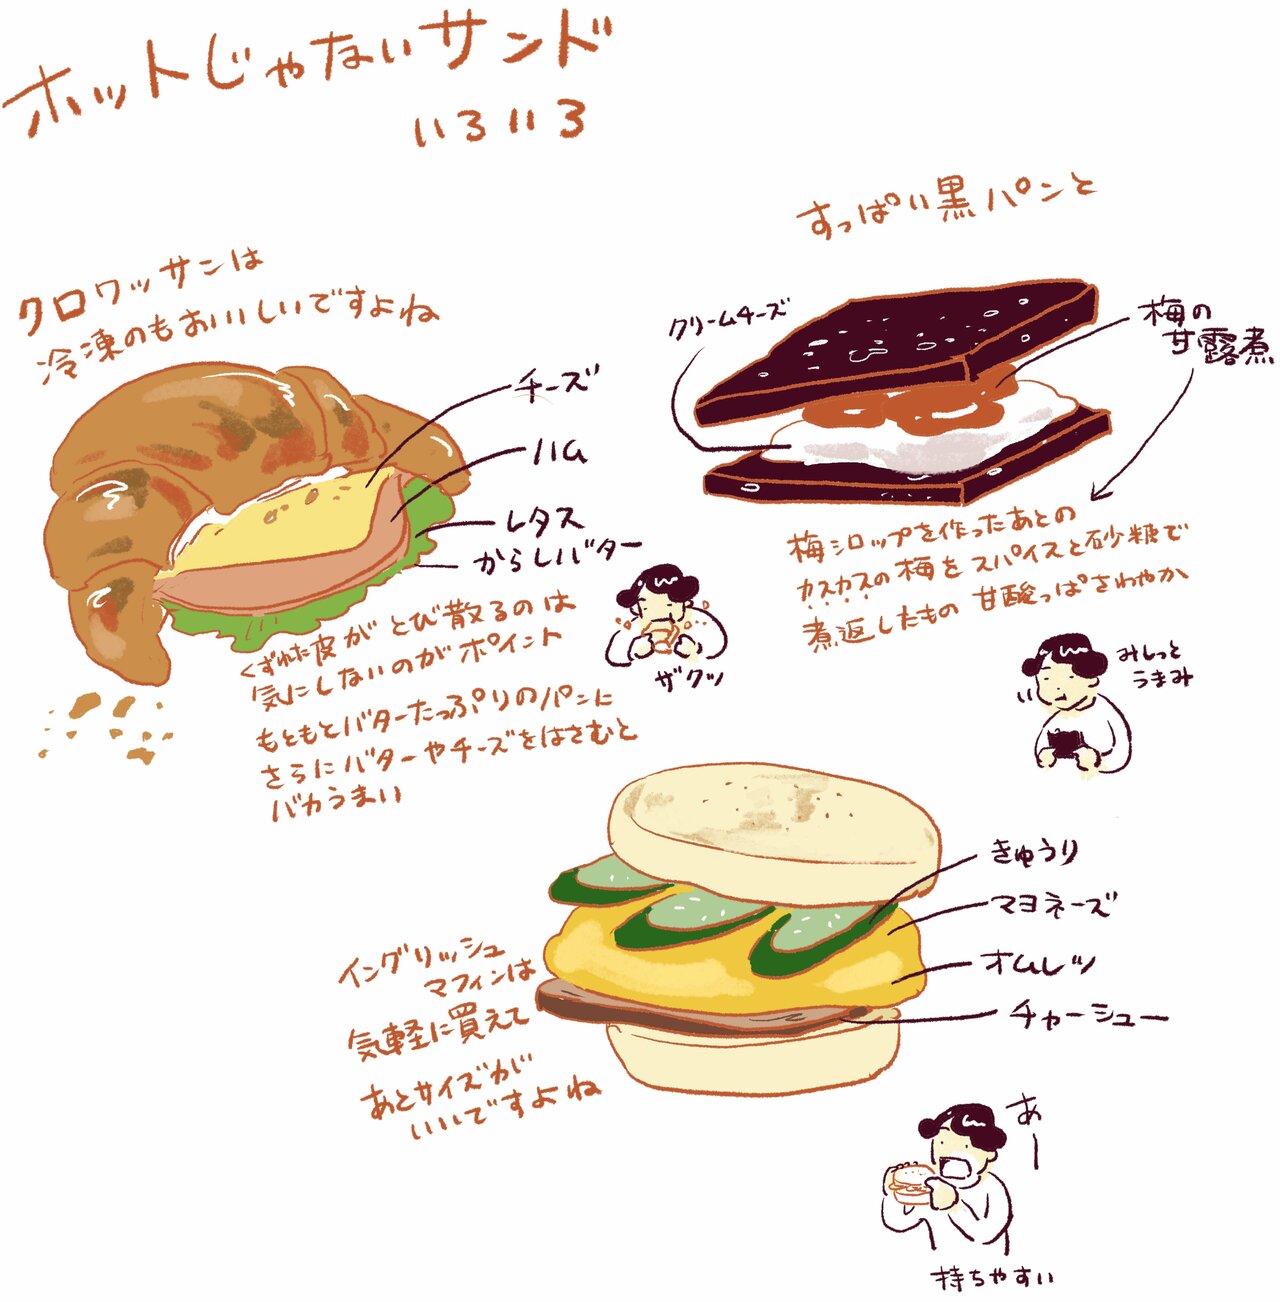 ホットじゃないサンド
いろいろ
クロワッサンは
冷凍のもおいしいですよね
チーズ
ハム
レタス
からしバター
くずれた皮がとび散るのは
気にしないのがポイント
もともとバターたっぷりのパンに
さらにバターやチーズをはさむと
バカうまい
ザクッ
すっぱい黒パンと
クリームチーズ
梅の
甘露煮
梅シロップを作ったあとの
カスカスの梅をスパイスと砂糖で
煮返したもの 甘酸っぱさわやか
みしっと
うまみ
きゅうり
マヨネーズ
オムレツ
チャーシュー
イングリッシュ
マフィンは
気軽に買えて
あとサイズが
いいですよね
あー
持ちやすい